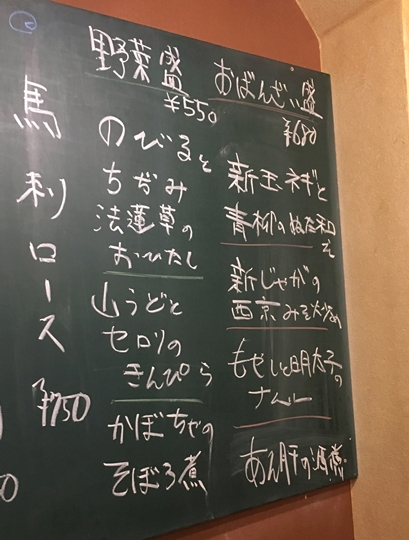 おばんざい盛
¥680
新玉ネギと
青柳のぬた和
え
新じゃがの
西京みそ炒め
もやしと明太子の
ナムル
あん肝の酒煮
野菜盛
¥550
のびると
ちぢみ
法蓮草の
おひたし
山うどと
セロリの
きんぴら
かぼちゃの
そぼろ煮
馬刺ロース
¥750